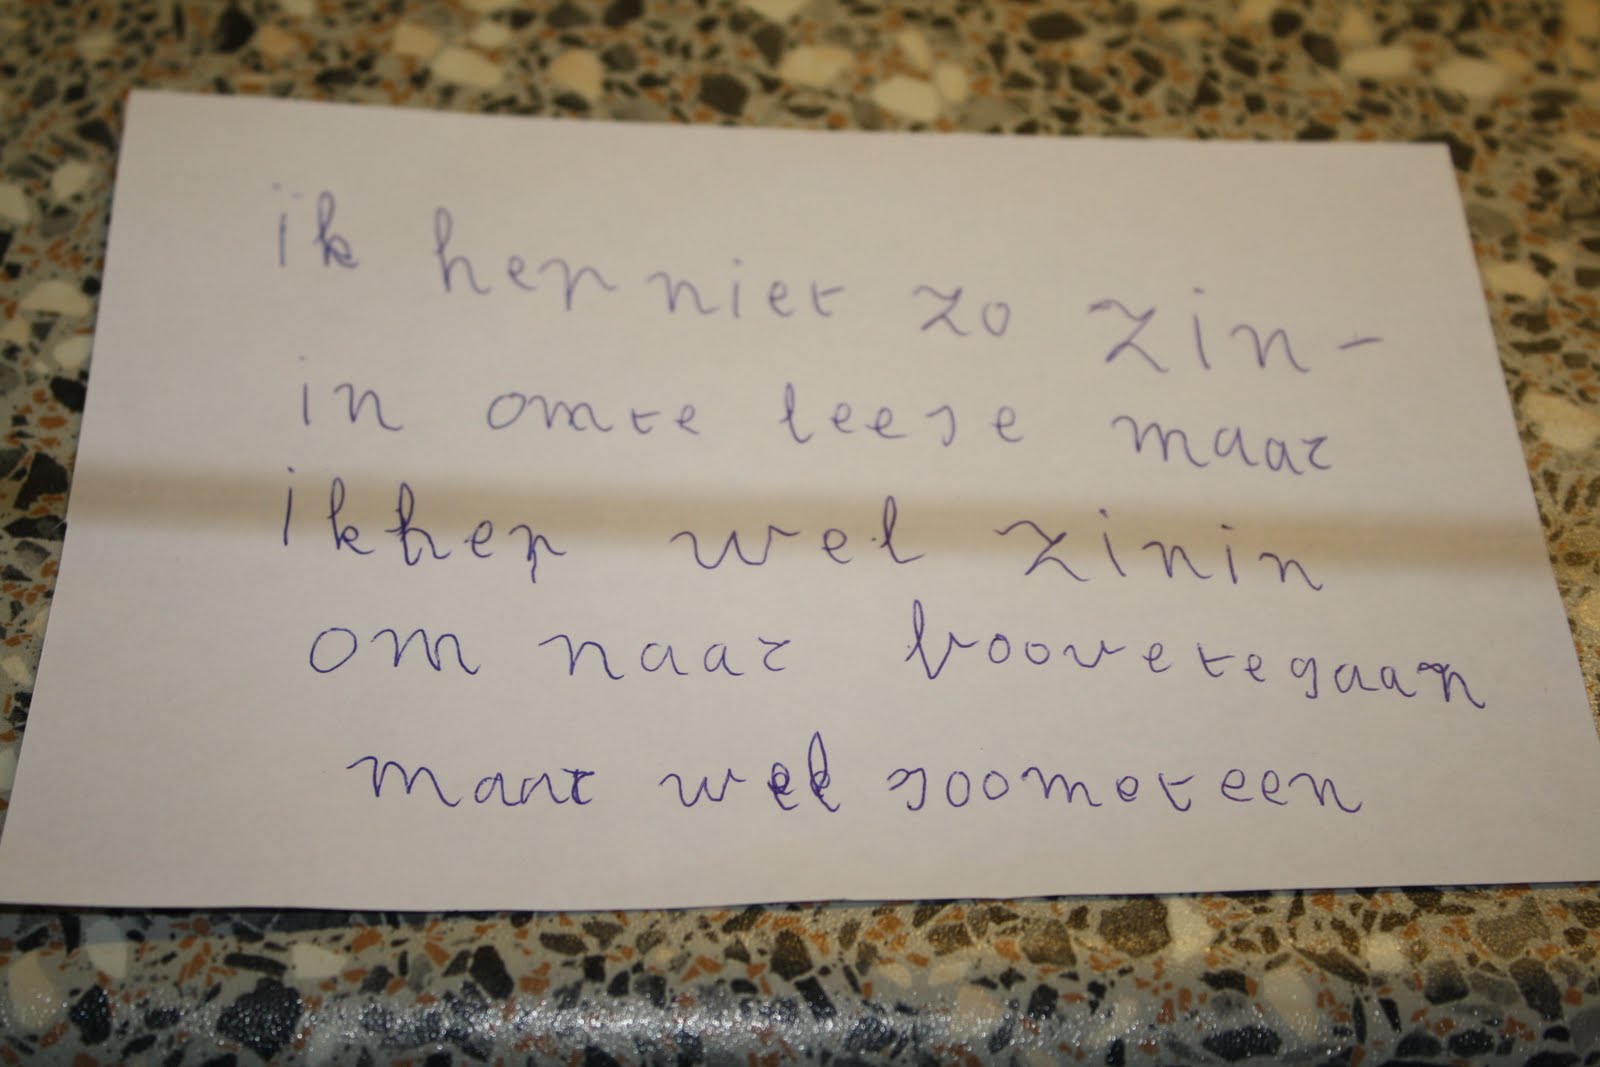 ik hep niet zo zin-
in omte leese maar
ik hep wel zinin
om naar boovetegaan
maar wel soometeen